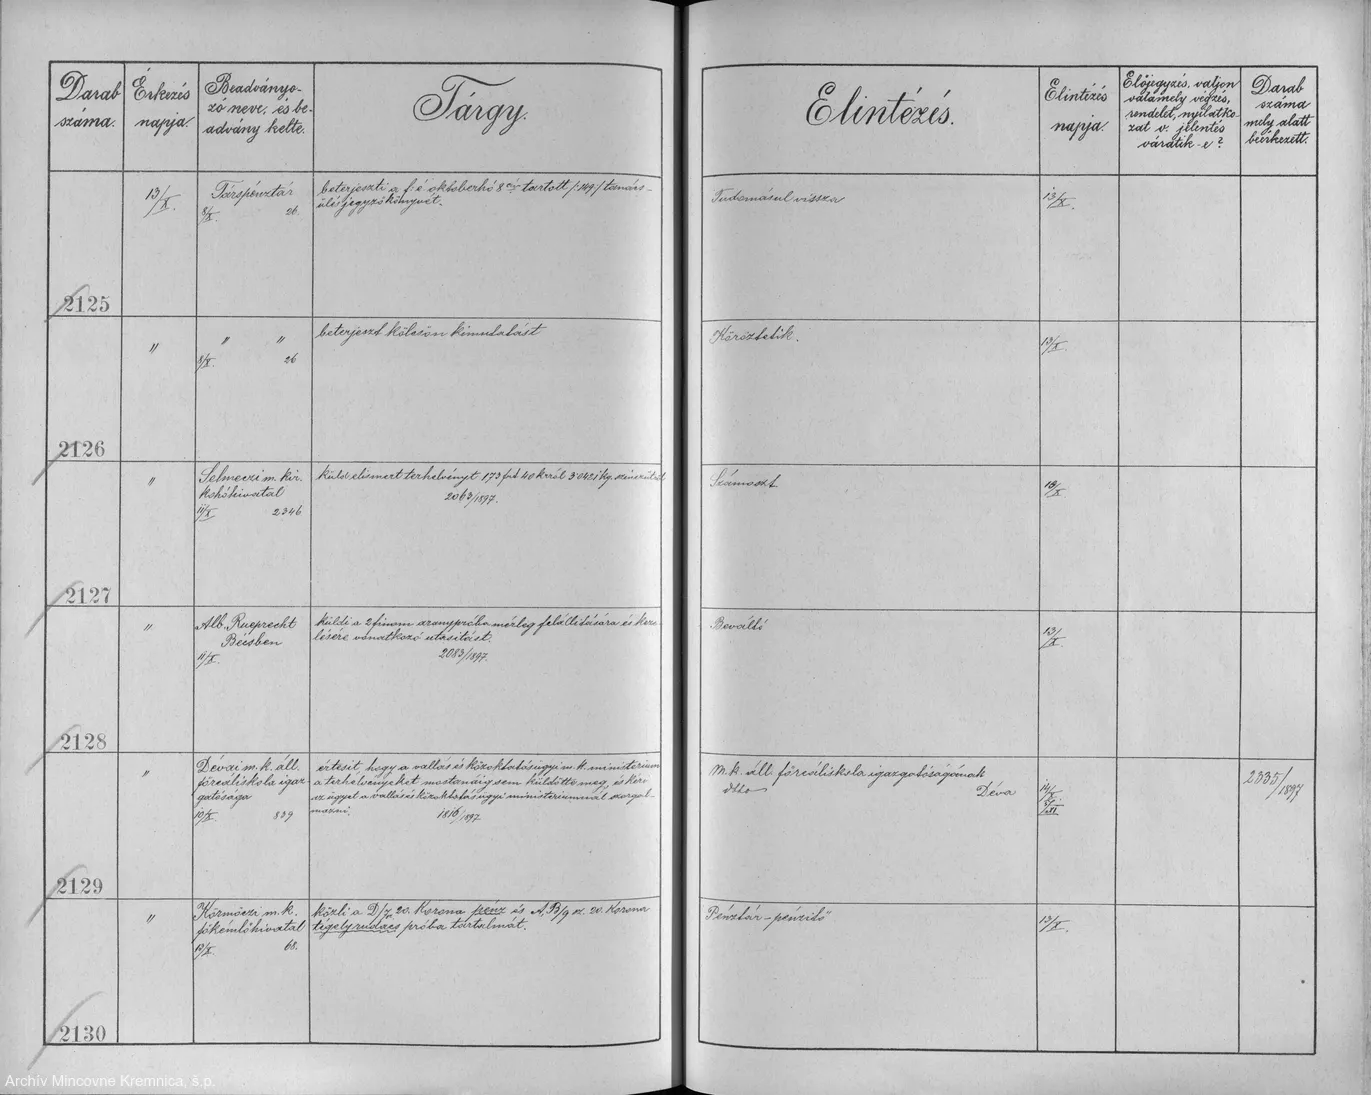 Darab
száma.
Érkezés
napja.
Beadványo-
zó neve, és be-
advány kelte.
Tárgy.
Elintézés.
Elintézés
napja.
Előjegyzés, valjon
valamely végzés,
rendelet, nyilatko-
zat v. jelentés
váratik-e?
Darab
száma
mely alatt
beérkezett.
2125
13/X.
Társpénztár
8/X. 26.
beterjeszti a f. é. oktoberhó 8 án tartott /:149:/ tanács-
ülés jegyzőkönyvét.
Tudomásul vissza
13/X.
2126
" " "
8/X. 26
beterjeszt kölcsön kimutatást
Köröztetik.
13/X.
2127
"
Selmeczi m. kir.
kohóhivatal
11/X 2346
küld elismert terhelvényt 173 frt 40 krról 3·0421 kg. színezüstért
2063/1897.
Számoszt.
13/X
2128
"
Alb. Rueprecht
Bécsben
11/X.
küldi a 2 finom aranypróba mérleg felállítására és keze-
lésére vonatkozó utasítást.
2083/1897.
Beváltó
13/X.
2129
"
Dévai m. k. áll.
főreáliskola igaz-
gatósága
10/X. 839
értesít, hogy a vallás és közoktatásügyi m. k. ministerium
a terhelvényeket mostanáig sem küldötte meg, és kéri
az ügyet a vallás és közoktatásügyi ministeriumnál szorgal-
mazni.
1818/1897
M. k. áll. főreáliskola igazgatóságának
dtto Déva
14/X.
2335/1897
2130
"
Körmöczi m. k.
főkémlőhivatal
12/X. 68.
közli a D/7 20. Korona pénz és A, B/9 sz. 20. Korona
tégelyrudacs próba tartalmát.
Pénztár – pénzítő"
13/X.
Archív Mincovne Kremnica, š.p.